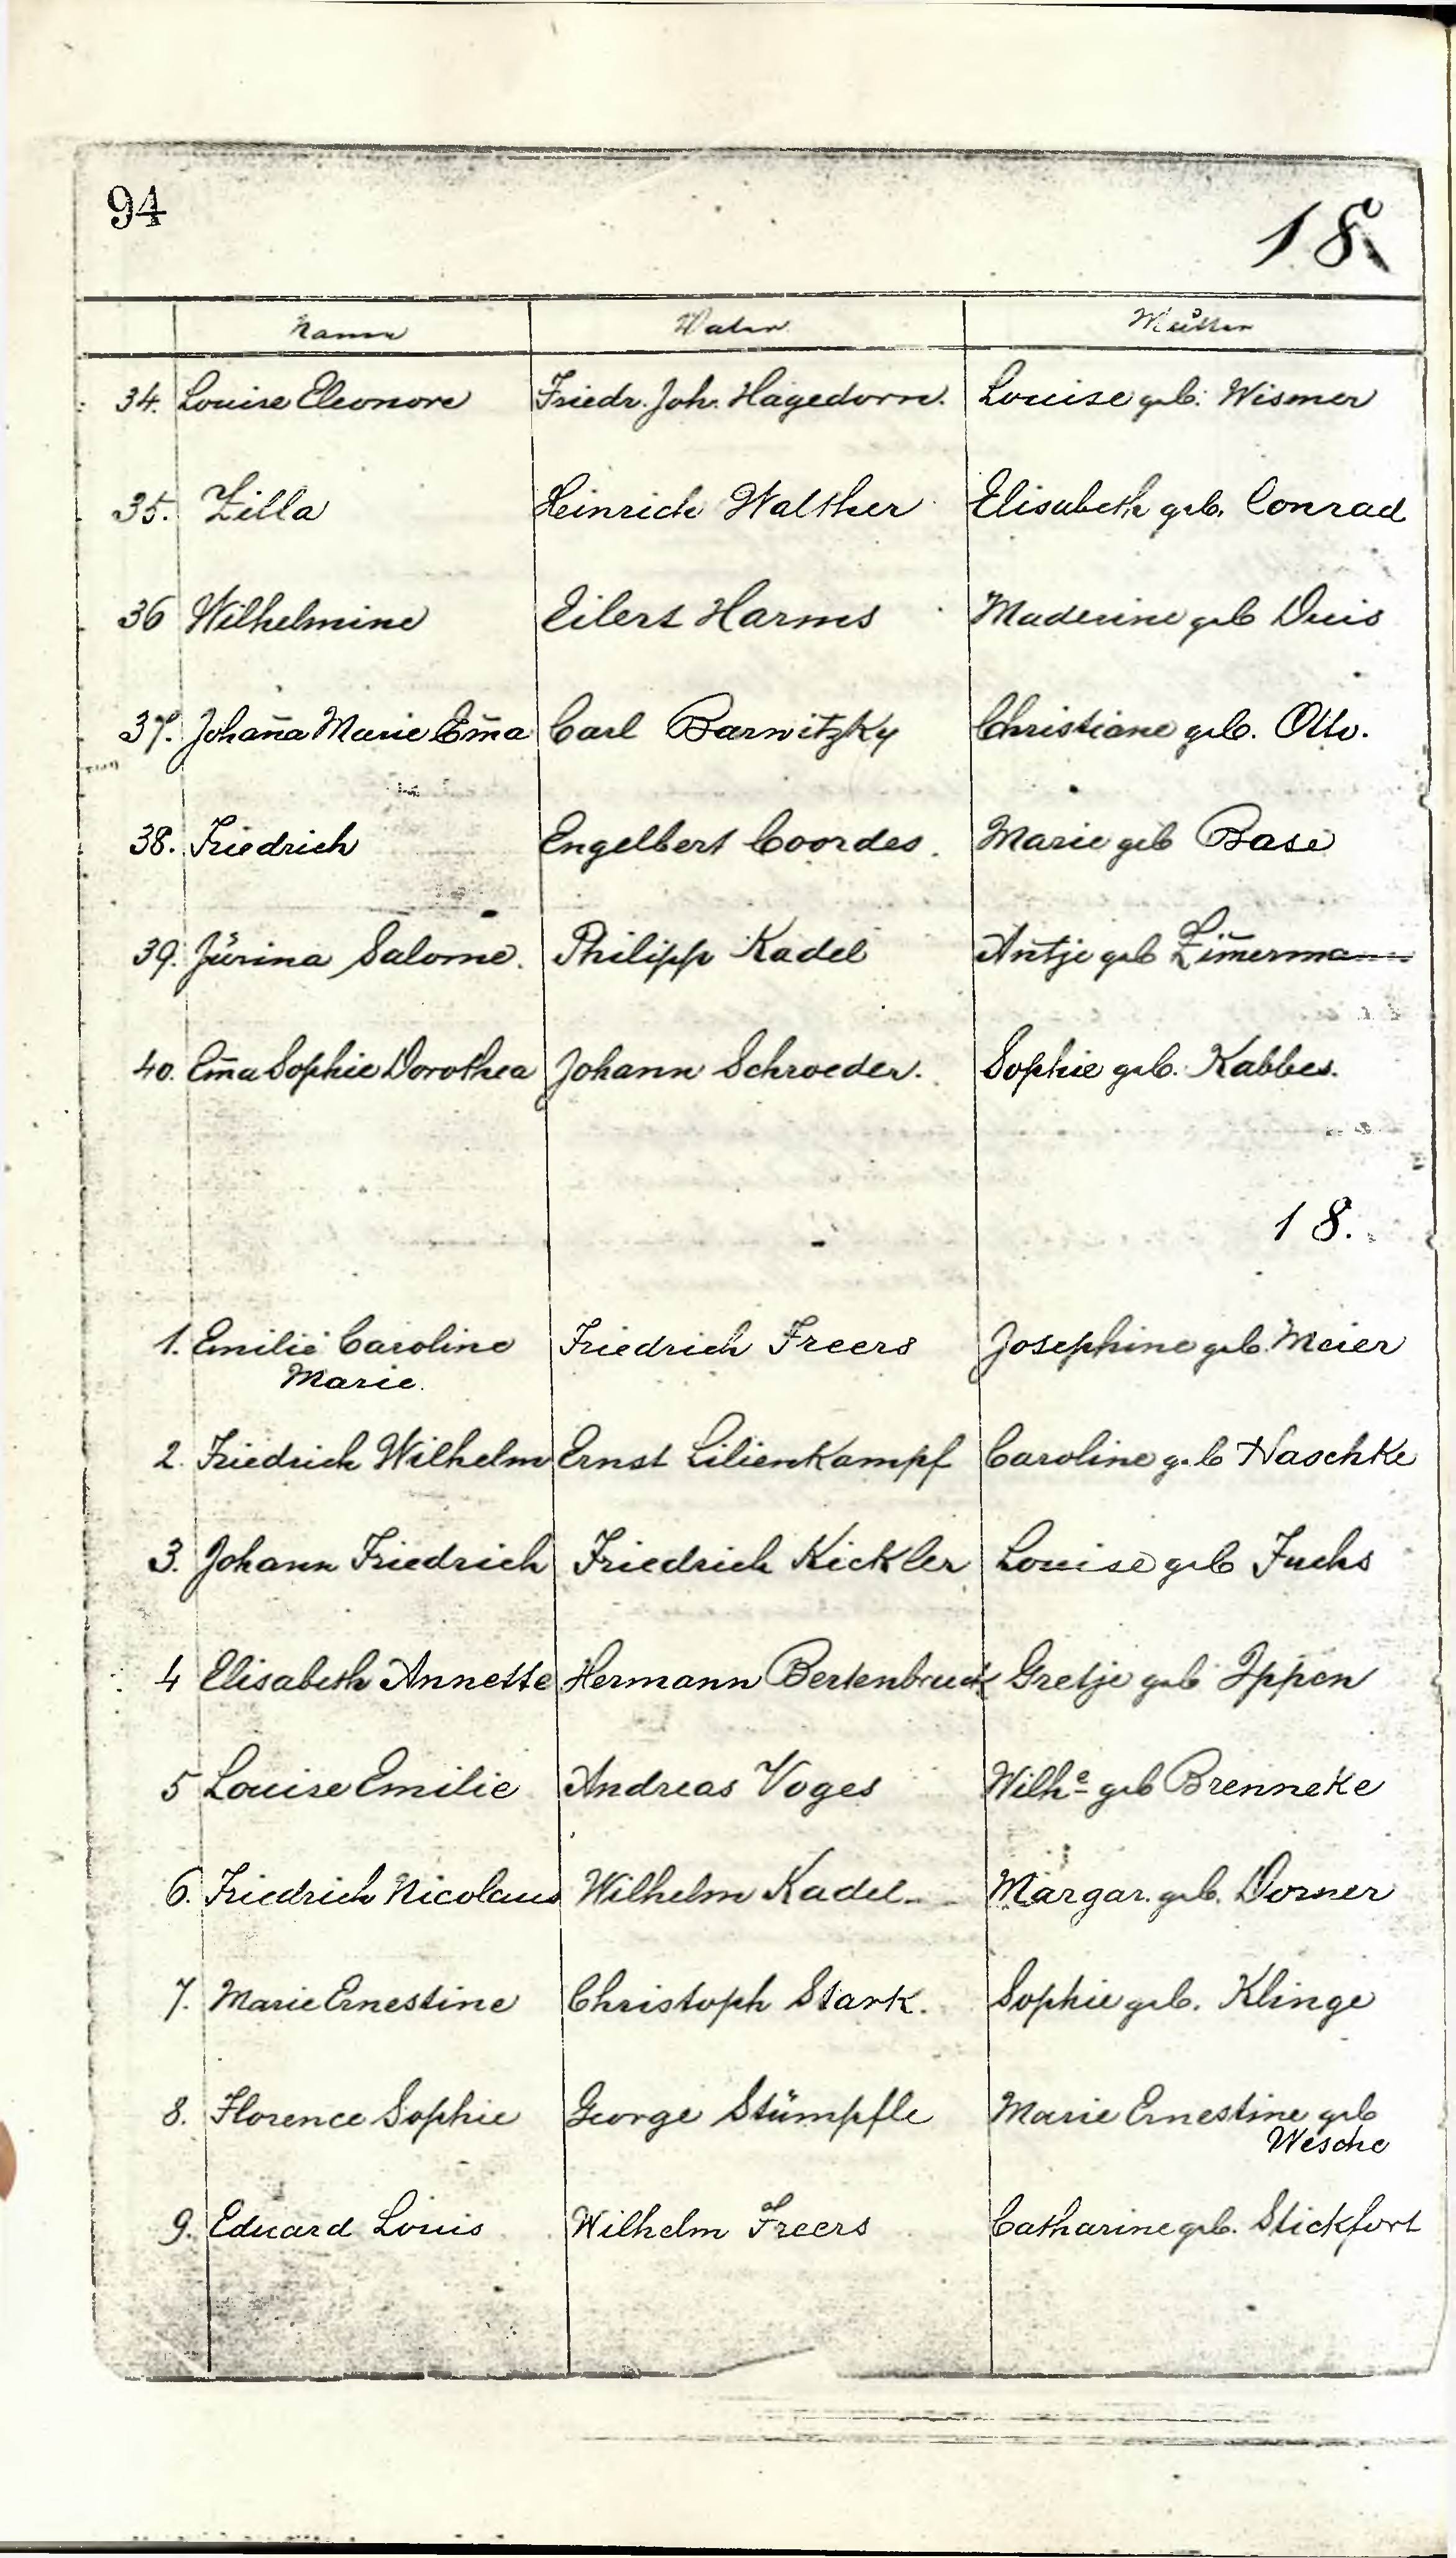 94
18
Name Vater Mutter
34. Louise Eleonore Friedr. Joh. Hagedorn. Louise geb. Wismer
35. Zilla Heinrich Walther Elisabeth geb. Conrad
36 Wilhelmine Eilert Harms Maderine geb Duis
37. Johan̄a Marie Em̄a Carl Barwitzky Christiane geb. Otto.
38. Friedrich Engelbert Coordes. Marie geb Base
39. Jürina Salome. Philipp Kadel Antje geb Zim̄ermann
40. Em̄a Sophie Dorothea Johann Schroeder. Sophie geb. Kabbes.
18.
1. Emilie Caroline Friedrich Freers Josephine geb. Meier
Marie.
2. Friedrich Wilhelm Ernst Lilienkampf Caroline geb Naschke
3. Johann Friedrich Friedrich Kickler Louise geb Fuchs
4 Elisabeth Annette Hermann Bertenbruck Gretje geb Ippen
5 Louise Emilie Andreas Voges Wilhe geb Brenneke
6. Friedrich Nicolaus Wilhelm Kadel Margar. geb. Dorner
7. Marie Ernestine Christoph Stark. Sophie geb. Klinge
8. Florence Sophie George Stümpfle Marie Ernestine geb
Wesche
9. Eduard Louis Wilhelm Freers Catharine geb. Stickfort